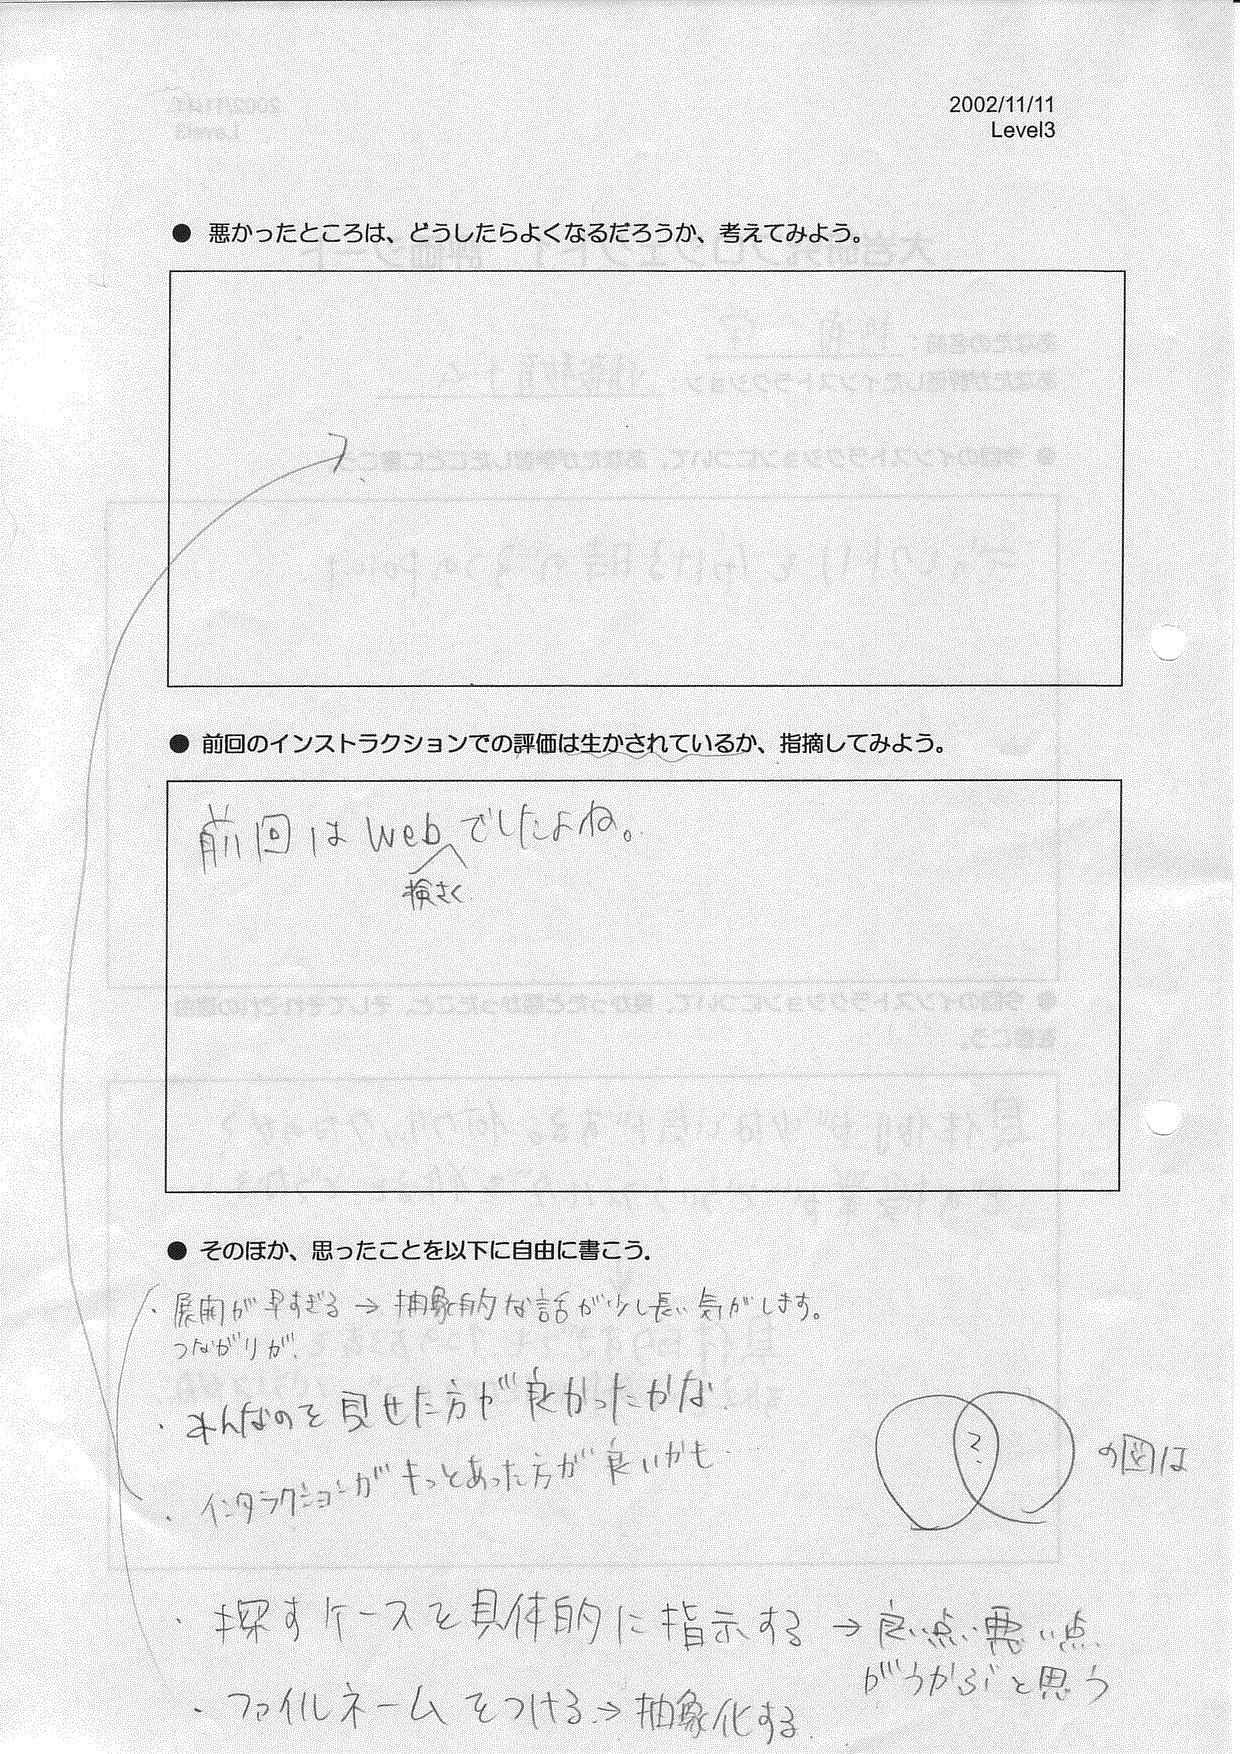 2002/11/11
Level3
● 悪かったところは、どうしたらよくなるだろうか、考えてみよう。
?
● 前回のインストラクションでの評価は生かされているか、指摘してみよう。
前回は Web でしたよね。
検さく
● そのほか、思ったことを以下に自由に書こう.
・展開が早すぎる → 抽象的な話が少し長い気がします。
つながりが、
・みんなのを見せた方が良かったかな.
・インタラクションがもっとあった方が良いかも……
?
の図は
・探すケースを具体的に指示する → 良い点、悪い点
がうかぶと思う
・ファイルネームをつける → 抽象化する.